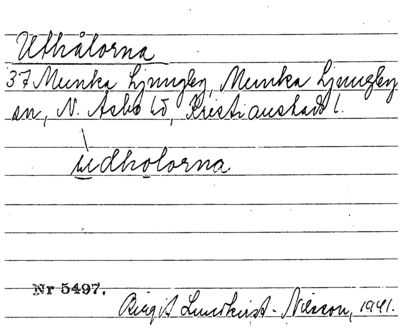 Uthålorna
37 Munka Ljungby, Munka Ljungby
sn, N. Åsbo hd, Kristianstads l.
udholorna
Nr 5497.
Birgit Lundkvist-Nilsson, 1941.